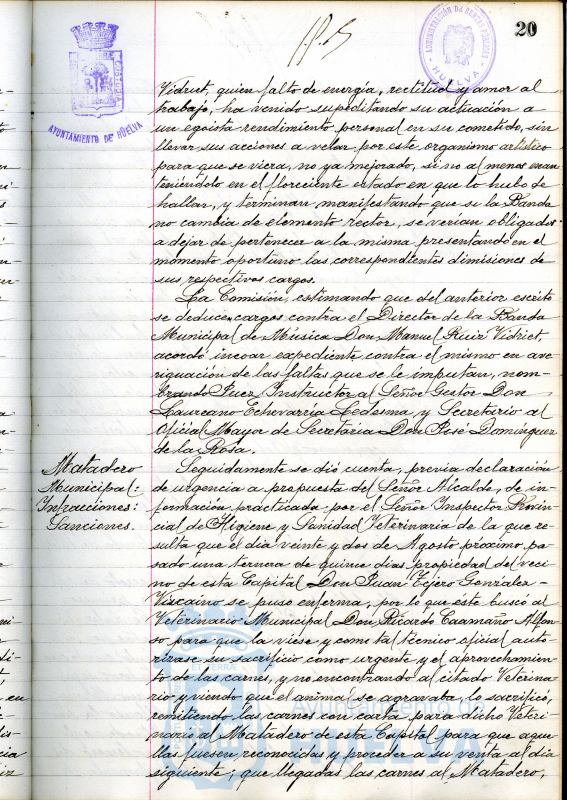 20
AYUNTAMIENTO DE HUELVA
ADMINISTRACIÓN DE RENTAS PÚBLICAS
HUELVA
Vidriet, quien falto de energía, rectitud y amor al
trabajo, ha venido supeditando su actuación a
un egoista rendimiento personal en su cometido, sin
llevar sus acciones a velar por este organismo artístico
para que se viera, no ya mejorado, si no al menos man
teniéndolo en el floreciente estado en que lo hubo de
hallar, y terminan manifestando que si la Banda
no cambia de elemento rector, se verían obligados
a dejar de pertenecer a la misma presentando en el
momento oportuno las correspondientes dimisiones de
sus respectivos cargos.
La Comisión, estimando que del anterior escrito
se deducen cargos contra el Director de la Banda
Municipal de Música Don Manuel Ruiz Vidriet,
acordó incoar expediente contra el mismo en ave
riguación de las faltas que se le imputan, nom-
brando Juez Instructor al Señor Gestor Don
Laureano Echevarría Ledesma, y Secretario al
Oficial Mayor de Secretaría Don José Domínguez
de la Rosa.
Matadero
Municipal:
Infracciones:
Sanciones.
Seguidamente se dió cuenta, previa declaración
de urgencia a propuesta del Señor Alcalde, de in-
formación practicada por el Señor Inspector Provin
cial de Higiene y Sanidad Veterinaria de la que re
sulta que el día veinte y dos de Agosto próximo pa
sado una ternera de quince días propiedad del veci
no de esta Capital Don Juan Tejero Gonzalez-
Vizcaino se puso enferma, por lo que éste buscó al
Veterinario Municipal Don Ricardo Caamaño Alfon
so para que la viese y como tal técnico oficial auto
rizase su sacrificio como urgente y el aprovechamien
to de las carnes, y no encontrando al citado Veterina
rio y viendo que el animal se agravaba, lo sacrificó,
remitiendo las carnes con carta para dicho Veteri
nario al Matadero de esta Capital para que aque
llas fuesen reconocidas y proceder a su venta al día
siguiente; que llegadas las carnes al Matadero,
Ayuntamiento de